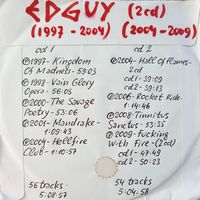 EDGUY (2cd)
(1997 - 2004) (2004 - 2009)
cd 1
℗1997 - Kingdom
Of Madness - 59:03
℗1998 - Vain Glory
Opera - 56:05
℗2000 - The Savage
Poetry - 53:06
℗2001 - Mandrake -
1:09:43
℗2004 - Hellfire
Club - 1:10:57
56 tracks
5:08:57
cd 2
℗2004 - Hall of Flames -
2cd
cd1 - 39:09
cd2 - 39:13
℗2006 - Rocket Ride -
1:14:46
℗2008 - Tinnitus
Sanctus - 53:35
℗2009 - Fucking
With Fire - (2cd)
cd1 - 47:49
cd2 - 50:23
54 tracks
5:04:58